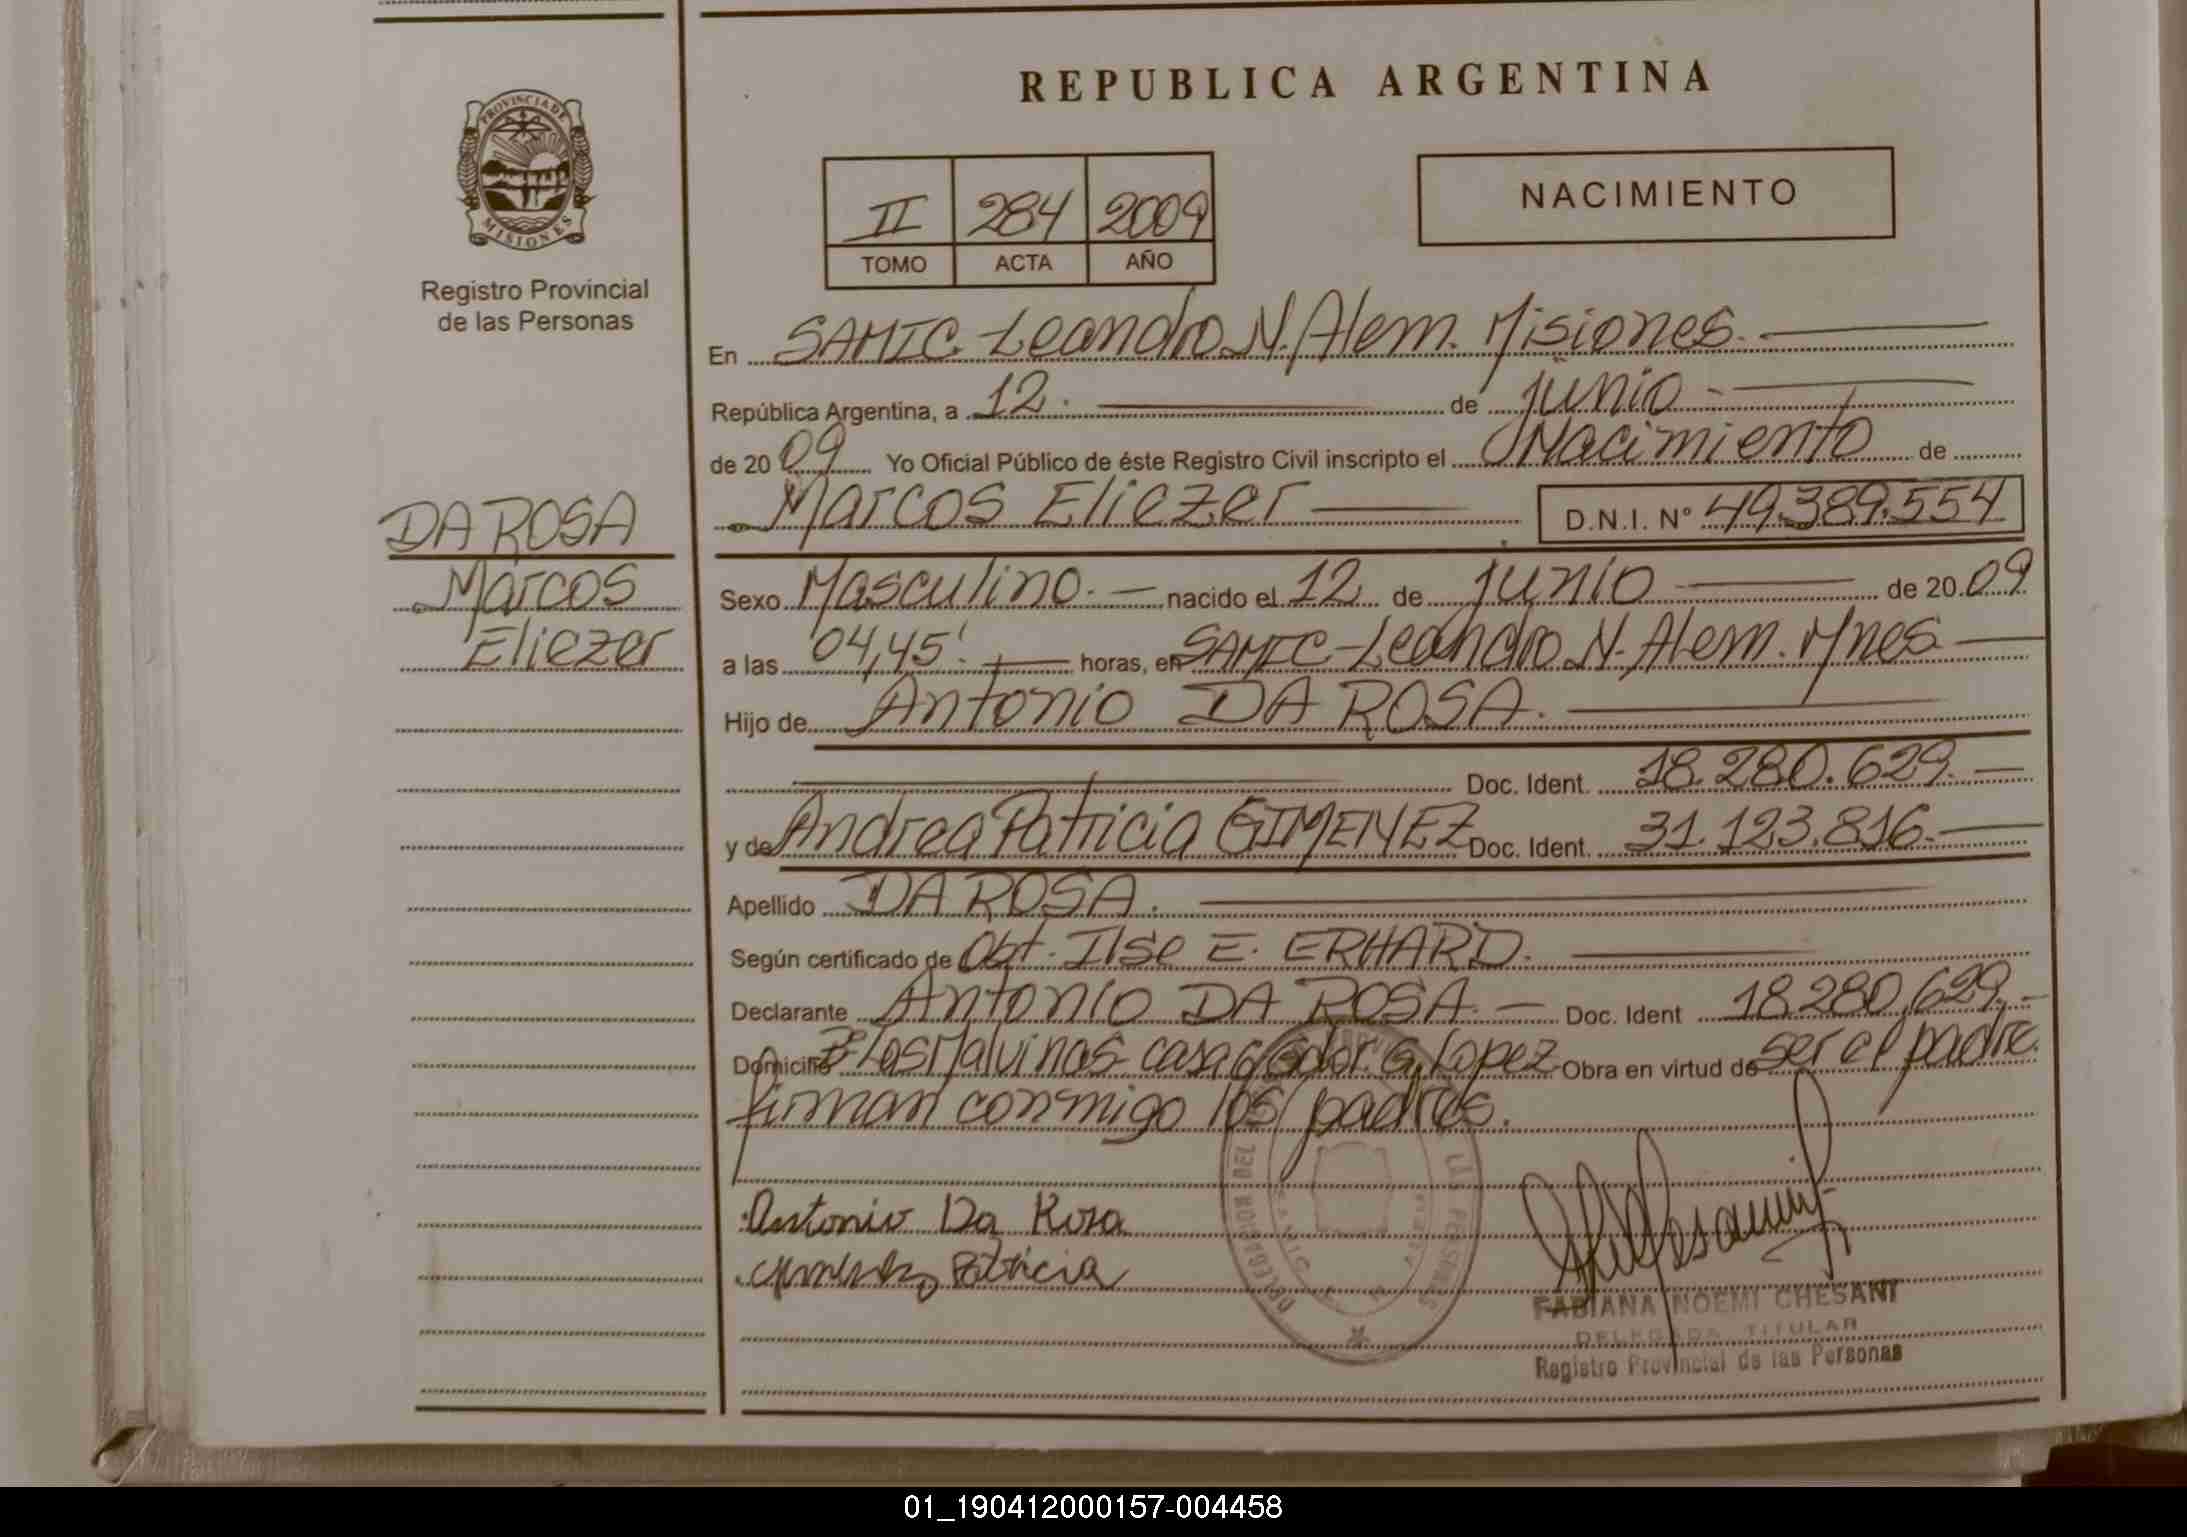 REPUBLICA ARGENTINA
PROVINCIA DE
MISIONES
Registro Provincial
de las Personas
II 284 2009
TOMO ACTA AÑO
NACIMIENTO
En SAMIC. Leandro N. Alem. Misiones.
República Argentina, a 12. de junio
de 2009 Yo Oficial Público de éste Registro Civil inscripto el Nacimiento de
Marcos Eliezer D.N.I. N° 49.389.554
DA ROSA
Marcos
Eliezer
Sexo Masculino. nacido el 12 de junio de 2009
a las 04,45'. horas, en SAMIC-Leandro N. Alem. Mnes
Hijo de Antonio DA ROSA.
Doc. Ident. 18.280.629.
y de Andrea Patricia GIMENEZ Doc. Ident. 31.123.816.
Apellido DA ROSA.
Según certificado de Obt. Ilse E. ERHARD.
Declarante Antonio DA ROSA. Doc. Ident 18.280,629.
Domicilio las Malvinas casa G. Lopez Obra en virtud de ser el padre.
firman conmigo los padres.
Antonio Da Rosa
Patricia
FABIANA NOEMI CHESANI
DELEGADA TITULAR
Registro Provincial de las Personas
01_190412000157-004458